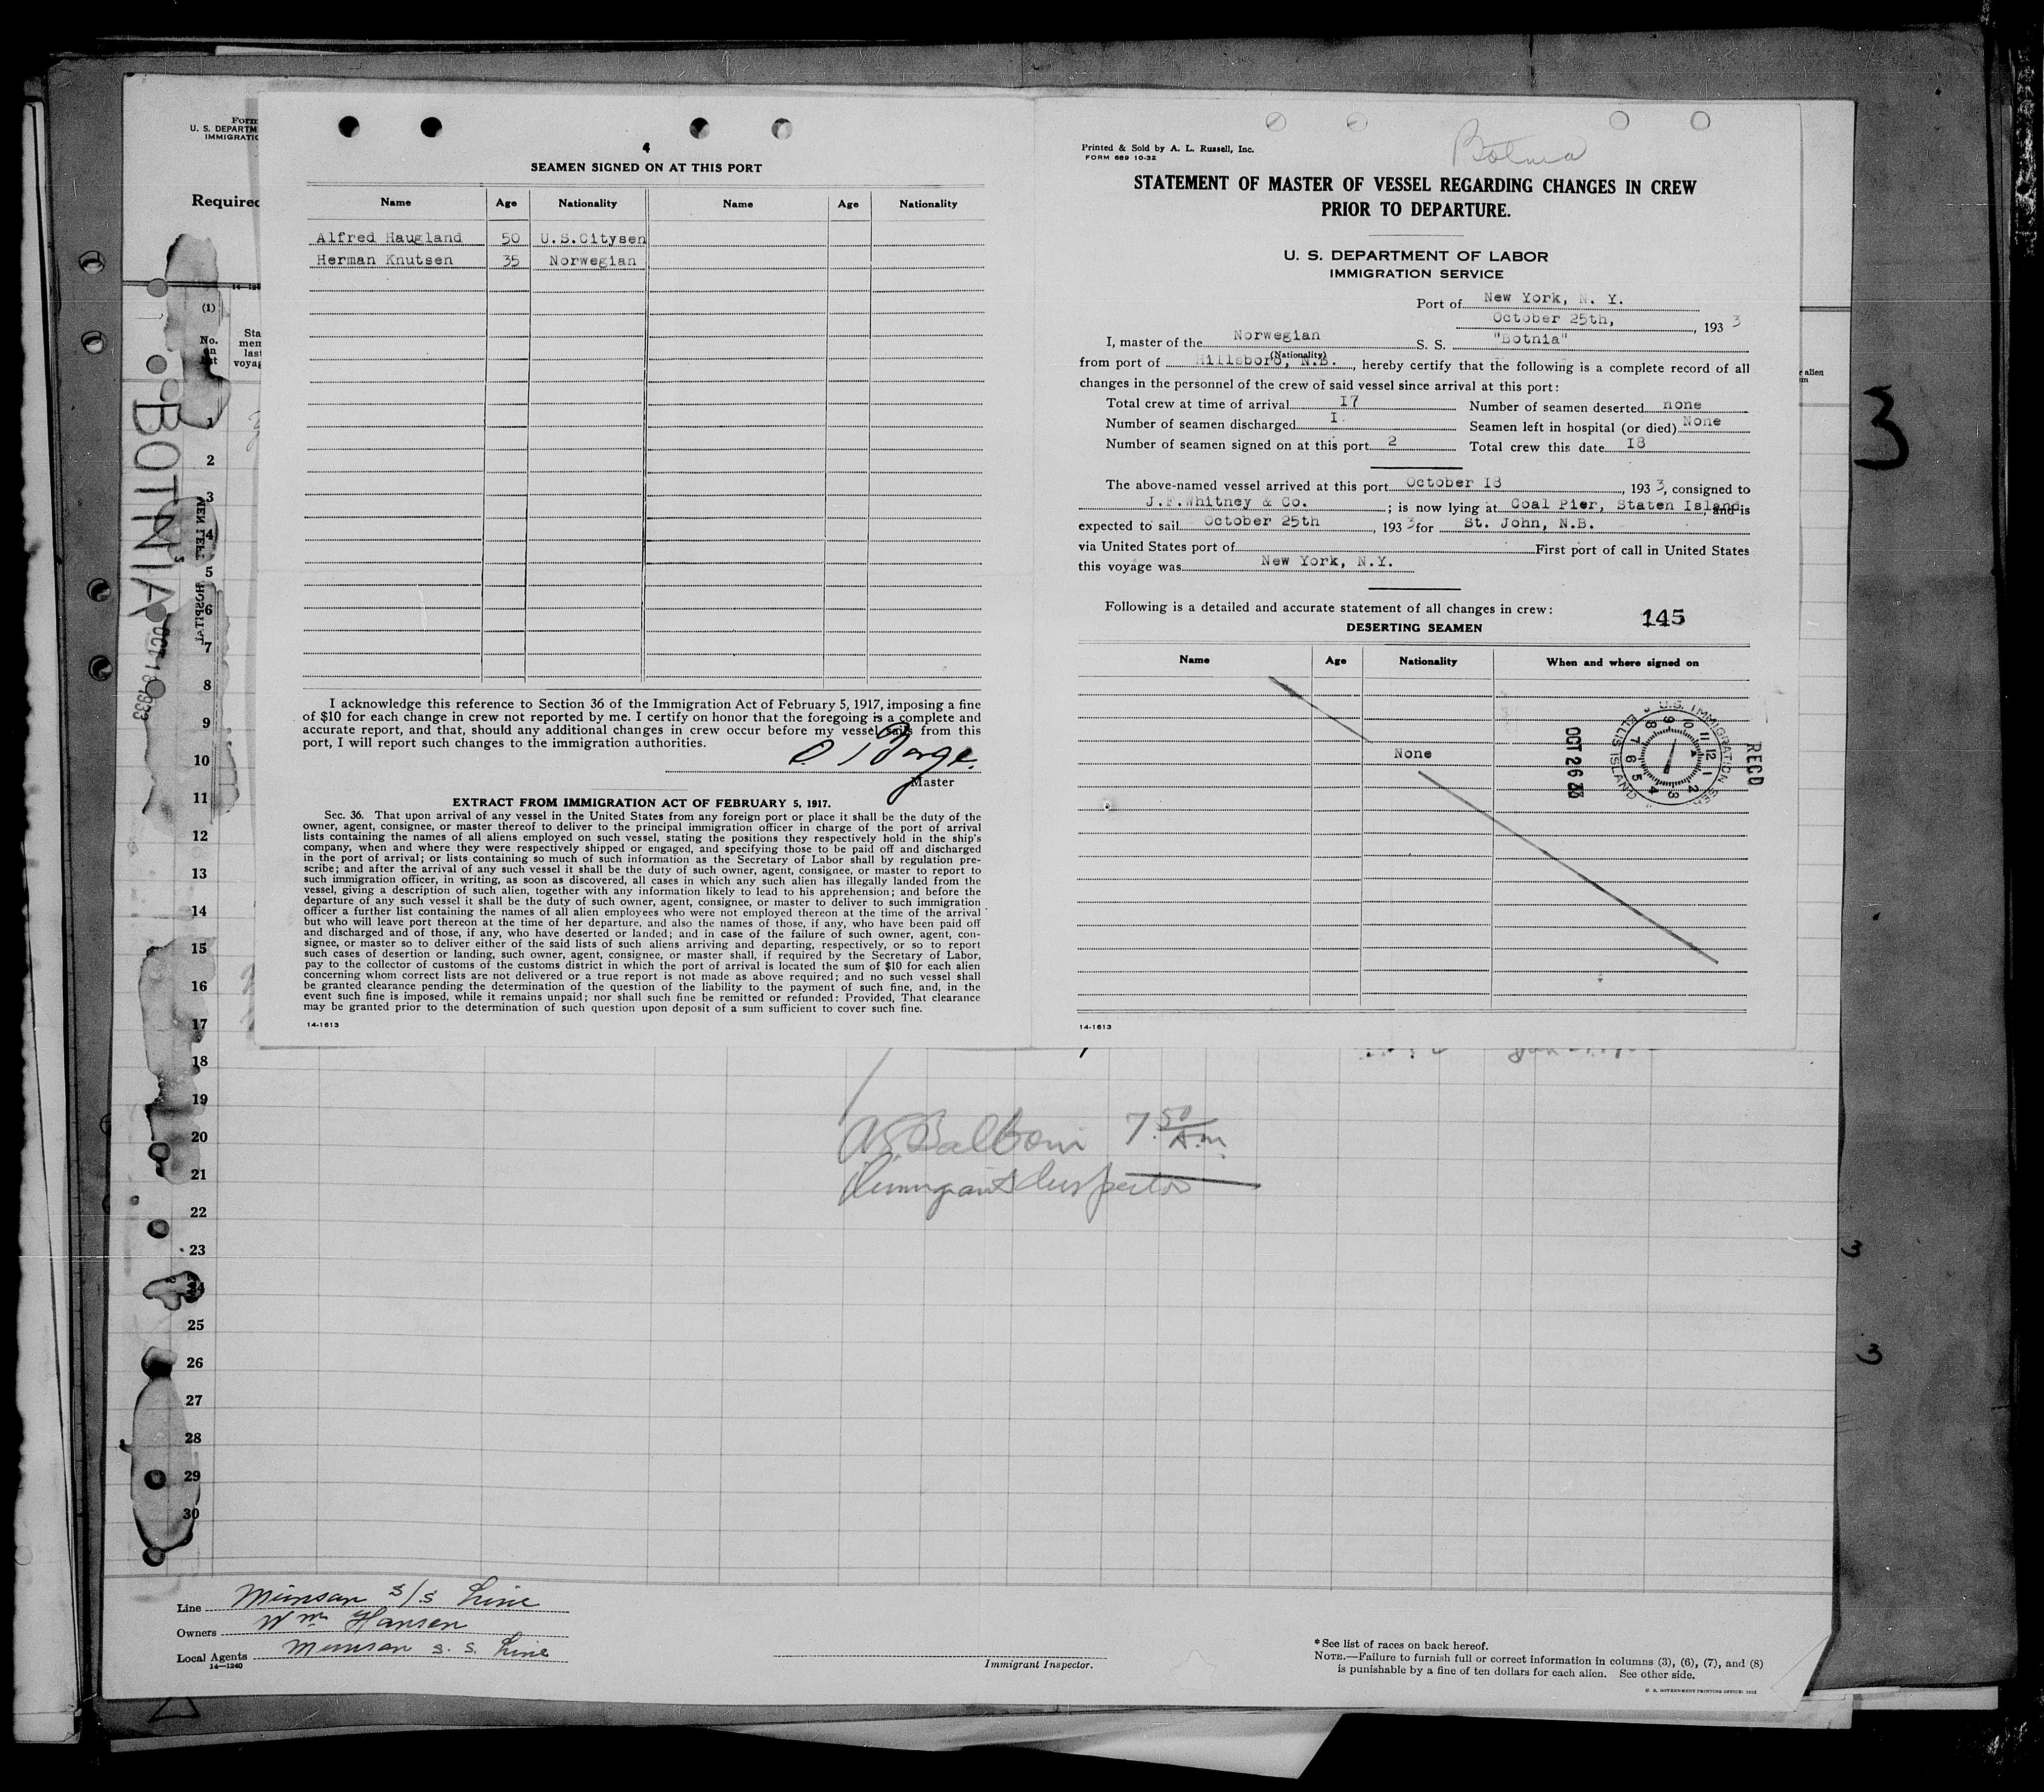 Form
U. S. DEPARTM
IMMIGRATIO
Required
(1)
No.
on
list
Sta
men
last
voyag
BOTNIA
OCT 18 1933
4
SEAMEN SIGNED ON AT THIS PORT
Name Age Nationality Name Age Nationality
Alfred Haugland 50 U.S.Citysen
Herman Knutsen 35 Norwegian
I acknowledge this reference to Section 36 of the Immigration Act of February 5, 1917, imposing a fine
of $10 for each change in crew not reported by me. I certify on honor that the foregoing is a complete and
accurate report, and that, should any additional changes in crew occur before my vessel sails from this
port, I will report such changes to the immigration authorities.
Master
EXTRACT FROM IMMIGRATION ACT OF FEBRUARY 5, 1917.
Sec. 36. That upon arrival of any vessel in the United States from any foreign port or place it shall be the duty of the
owner, agent, consignee, or master thereof to deliver to the principal immigration officer in charge of the port of arrival
lists containing the names of all aliens employed on such vessel, stating the positions they respectively hold in the ship's
company, when and where they were respectively shipped or engaged, and specifying those to be paid off and discharged
in the port of arrival; or lists containing so much of such information as the Secretary of Labor shall by regulation pre-
scribe; and after the arrival of any such vessel it shall be the duty of such owner, agent, consignee, or master to report to
such immigration officer, in writing, as soon as discovered, all cases in which any such alien has illegally landed from the
vessel, giving a description of such alien, together with any information likely to lead to his apprehension; and before the
departure of any such vessel it shall be the duty of such owner, agent, consignee, or master to deliver to such immigration
officer a further list containing the names of all alien employees who were not employed thereon at the time of the arrival
but who will leave port thereon at the time of her departure, and also the names of those, if any, who have been paid off
and discharged and of those, if any, who have deserted or landed; and in case of the failure of such owner, agent, con-
signee, or master so to deliver either of the said lists of such aliens arriving and departing, respectively, or so to report
such cases of desertion or landing, such owner, agent, consignee, or master shall, if required by the Secretary of Labor,
pay to the collector of customs of the customs district in which the port of arrival is located the sum of $10 for each alien
concerning whom correct lists are not delivered or a true report is not made as above required; and no such vessel shall
be granted clearance pending the determination of the question of the liability to the payment of such fine, and, in the
event such fine is imposed, while it remains unpaid; nor shall such fine be remitted or refunded: Provided, That clearance
may be granted prior to the determination of such question upon deposit of a sum sufficient to cover such fine.
14-1613
Botnia
Printed & Sold by A. L. Russell, Inc.
FORM 689 10-32
STATEMENT OF MASTER OF VESSEL REGARDING CHANGES IN CREW
PRIOR TO DEPARTURE.
U. S. DEPARTMENT OF LABOR
IMMIGRATION SERVICE
Port of New York, N. Y.
October 25th, , 193 3
I, master of the Norwegian S. S. "Botnia"
(Nationality)
from port of Hillsboro, N.B. , hereby certify that the following is a complete record of all
changes in the personnel of the crew of said vessel since arrival at this port:
Total crew at time of arrival 17 Number of seamen deserted none
Number of seamen discharged I. Seamen left in hospital (or died) None
Number of seamen signed on at this port 2 Total crew this date 18
The above-named vessel arrived at this port October 18 , 193 3, consigned to
J.F.Whitney & Co. ; is now lying at Coal Pier, Staten Island, and is
expected to sail October 25th , 193 3 for St. John, N.B.
via United States port of First port of call in United States
this voyage was New York, N.Y.
Following is a detailed and accurate statement of all changes in crew:
145
DESERTING SEAMEN
Name Age Nationality When and where signed on
None
RECD
U.S. IMMIGRATION SER
ELLIS ISLAND
OCT 26 33
14-1613
r alien
3
1
2
3
4
5
6
7
8
9
10
11
12
13
14
15
16
17
18
19
20
21
22
23
24
25
26
27
28
29
30
7.50 A.m.
Immigrant Inspector
3
3
Line Munson S/S Line
Owners Wm Hansen
Local Agents Munson S. S. Line
14-1240
Immigrant Inspector.
* See list of races on back hereof.
NOTE.—Failure to furnish full or correct information in columns (3), (6), (7), and (8)
is punishable by a fine of ten dollars for each alien. See other side.
U. S. GOVERNMENT PRINTING OFFICE: 1932